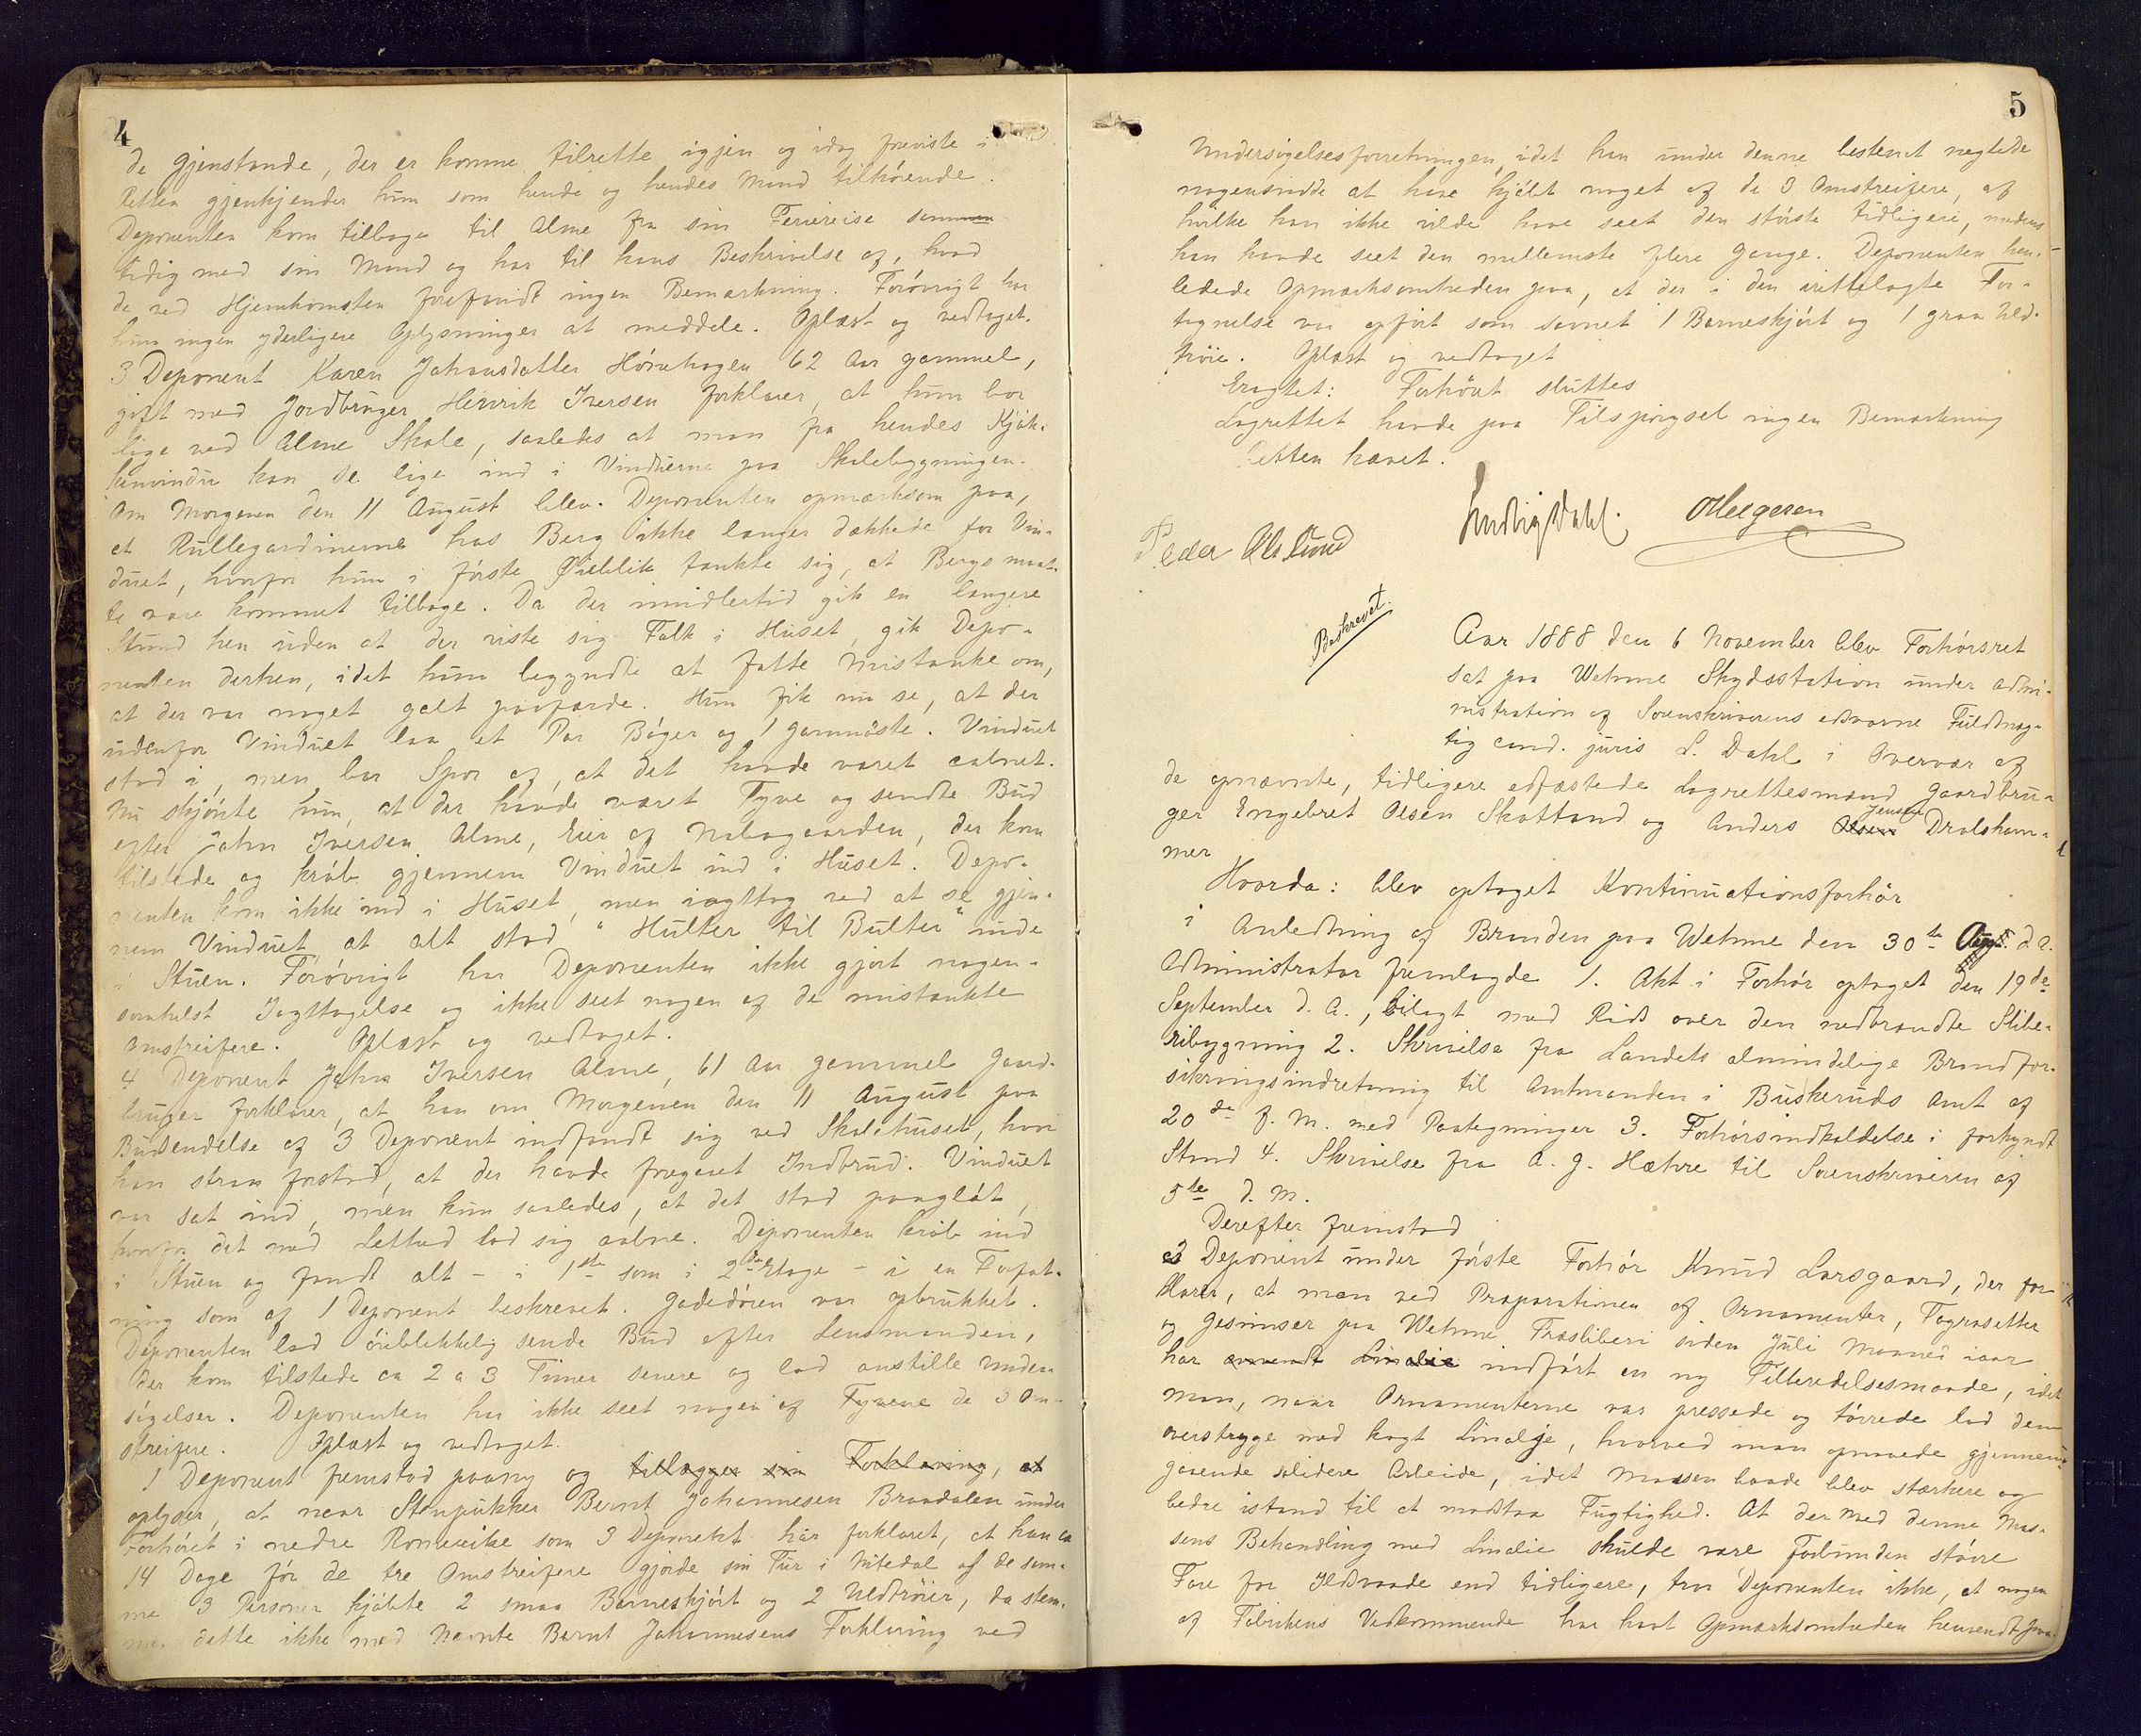 4
de Gjenstande, der er komne tilrette igjen og idag foreviste i
Retten gjenkjender hun som hende og hendes Mand tilhørende.
Deponenten kom tilbage til Alme fra sin Feriereise sammen
tidig med sin Mand og har til hans Beskrivelse af, hvad
de ved Hjemkomsten forefandt ingen Bemærkning. Forøvrigt har
hun ingen yderligere Oplysninger at meddele. Oplæst og vedtaget.
3 Deponent Karen Johansdatter Hørnhagen 62 Aar gammel,
gift med Jordbruger Henrik Iversen forklarer, at hun bor
lige ved Alme Skole, saaledes at man fra hendes Kjøk-
kenvindu kan se lige ind i Vinduerne paa Skolebygningen.
Om Morgenen den 11 August blev Deponenten opmærksom paa,
at Rullegardinerne hos Berg ikke længer dækkede for Vin-
duet, hvorfor hun i første Øieblik tænkte sig, at Bergs maat-
te være kommet tilbage. Da der imidlertid gik en længere
Stund hen uden at der viste sig Folk i Huset, gik Depo-
nenten derhen, idet hun begyndte at fatte Mistanke om,
at der var noget galt paafærde. Hun fik nu se, at der
udenfor Vinduet laa et Par Bøger og 1 Garnnøste. Vinduet
stod i, men bar Spor af, at det havde været aabnet.
Nu skjønte hun, at der havde været Tyve og sendte Bud
efter John Iversen Alme, Eier af Nabogaarden, der kom
tilstede og krøb gjennem Vinduet ind i Huset. Depo-
nenten kom ikke ind i Huset, men iagttog ved at se gjen-
nem Vinduet, at alt stod "Hulter til Bulter" inde
i Stuen. Forøvrigt har Deponenten ikke gjort nogen-
somhelst Iagttagelse og ikke seet nogen af de mistænkte
Omstreifere. Oplæst og vedtaget.
4 Deponent John Iversen Alme, 61 Aar gammel Gaard-
bruger forklarer, at han om Morgenen den 11 August paa
Budsendelse af 3 Deponent indfandt sig ved Skolehuset, hvor
han strax forstod, at der havde foregaaet Indbrud. Vinduet
var sat ind, men kun saaledes, at det stod paagløt,
hvorfor det med Lethed lod sig aabne. Deponenten krøb ind
i Stuen og fandt alt - i 1ste som i 2den Etage - i en Forfat-
ning som af 1 Deponent beskrevet. Gadedøren var opbrukket.
Deponenten lod øieblikkelig sende Bud efter Lensmanden,
der kom tilstede ca 2 a 3 Timer senere og lod anstille Under-
søgelser. Deponenten har ikke seet nogen af Tyvene de 3 Om-
streifere. Oplæst og vedtaget.
1 Deponent fremstod paany og tillægger sin Forklaring, at
oplyser, at naar Stenpukker Bernt Johannesen Braadalen under
Forhøret i nedre Romerike som 3 Deponent har forklaret, at han ca
14 Dage før de tre Omstreifere gjorde sin Tur i Nitedal af de sam-
me 3 Personer kjøbte 2 smaa Barneskjørt og 2 Uldtrøier, da stem-
mer dette ikke med Nævnte Bernt Johannesens Forklaring ved
5
Undersøgelsesforretningen, idet han under denne bestemt negtede
nogensinde at have kjøbt noget af de 3 Omstreifere, af
hvilke han ikke vilde have seet den største tidligere, medens
han havde seet den mellemste flere Gange. Deponenten hen-
ledede Opmærksomheden paa, at der i den irettelagte For-
tegnelse var opført som savnet 1 Barneskjørt og 1 graa Uld-
trøie. Oplæst og vedtaget
Eragtet: Forhøret sluttes
Lagrettet havde paa Tilspørgsel ingen Bemærkning
Retten hævet.
Ludvig Dahl. OHelgesen
Peder Ølslund
Beskrevet.
Aar 1888 den 6 November blev Forhørsret
sat paa Wehme Skydsstation under Admi-
nistration af Sorenskriverens edsvorne Fuldmæg-
tig cand. juris L. Dahl i Overvær af
de opnævnte, tidligere edfæstede Lagrettesmænd Gaardbru-
ger Engebret Olsen Skotland og Anders Olsen Jensen Dralsham-
mer
Hvorda: blev optaget Kontinuationsforhør
i Anledning af Branden paa Wehme den 30te Augt. d. A.
Administrator fremlagde 1. Akt i Forhør optaget den 19de
September d. A., bilagt med Rids over den nedbrændte Slibe-
ribygning 2. Skrivelse fra Landets almindelige Brandfor-
sikringsindretning til Amtmanden i Buskeruds Amt af
20de f. M. med Paategninger 3. Forhørsindkaldelse i forkyndt
Stand 4. Skrivelse fra A. G. Hæhre til Sorenskriveren af
5te d. M.
Derefter fremstod
2 Deponent under første Forhør Knud Larsgaard, der for-
klarer, at man ved Præparationen af Ornamenter, Tagrosetter
og Gesimser paa Wehme Træsliberi siden Juli Maaned iaar
har anvendt Linolie indført en ny Tilberedelsesmaade, idet
man, naar Ornamenterne var pressede og tørrede lod dem
overstryge med kogt Linolje, hvorved man opnaaede gjennem-
gaaende solidere Arbeide, idet Massen baade blev stærkere og
bedre istand til at modstaa Fugtighed. At der med denne Mas-
sens Behandling med Linolie skulde være forbunden større
Fare for Ildsvaade end tidligere, tror Deponenten ikke, at nogen
af Fabrikens Vedkommende har havt Opmærksomheden henvendt paa.